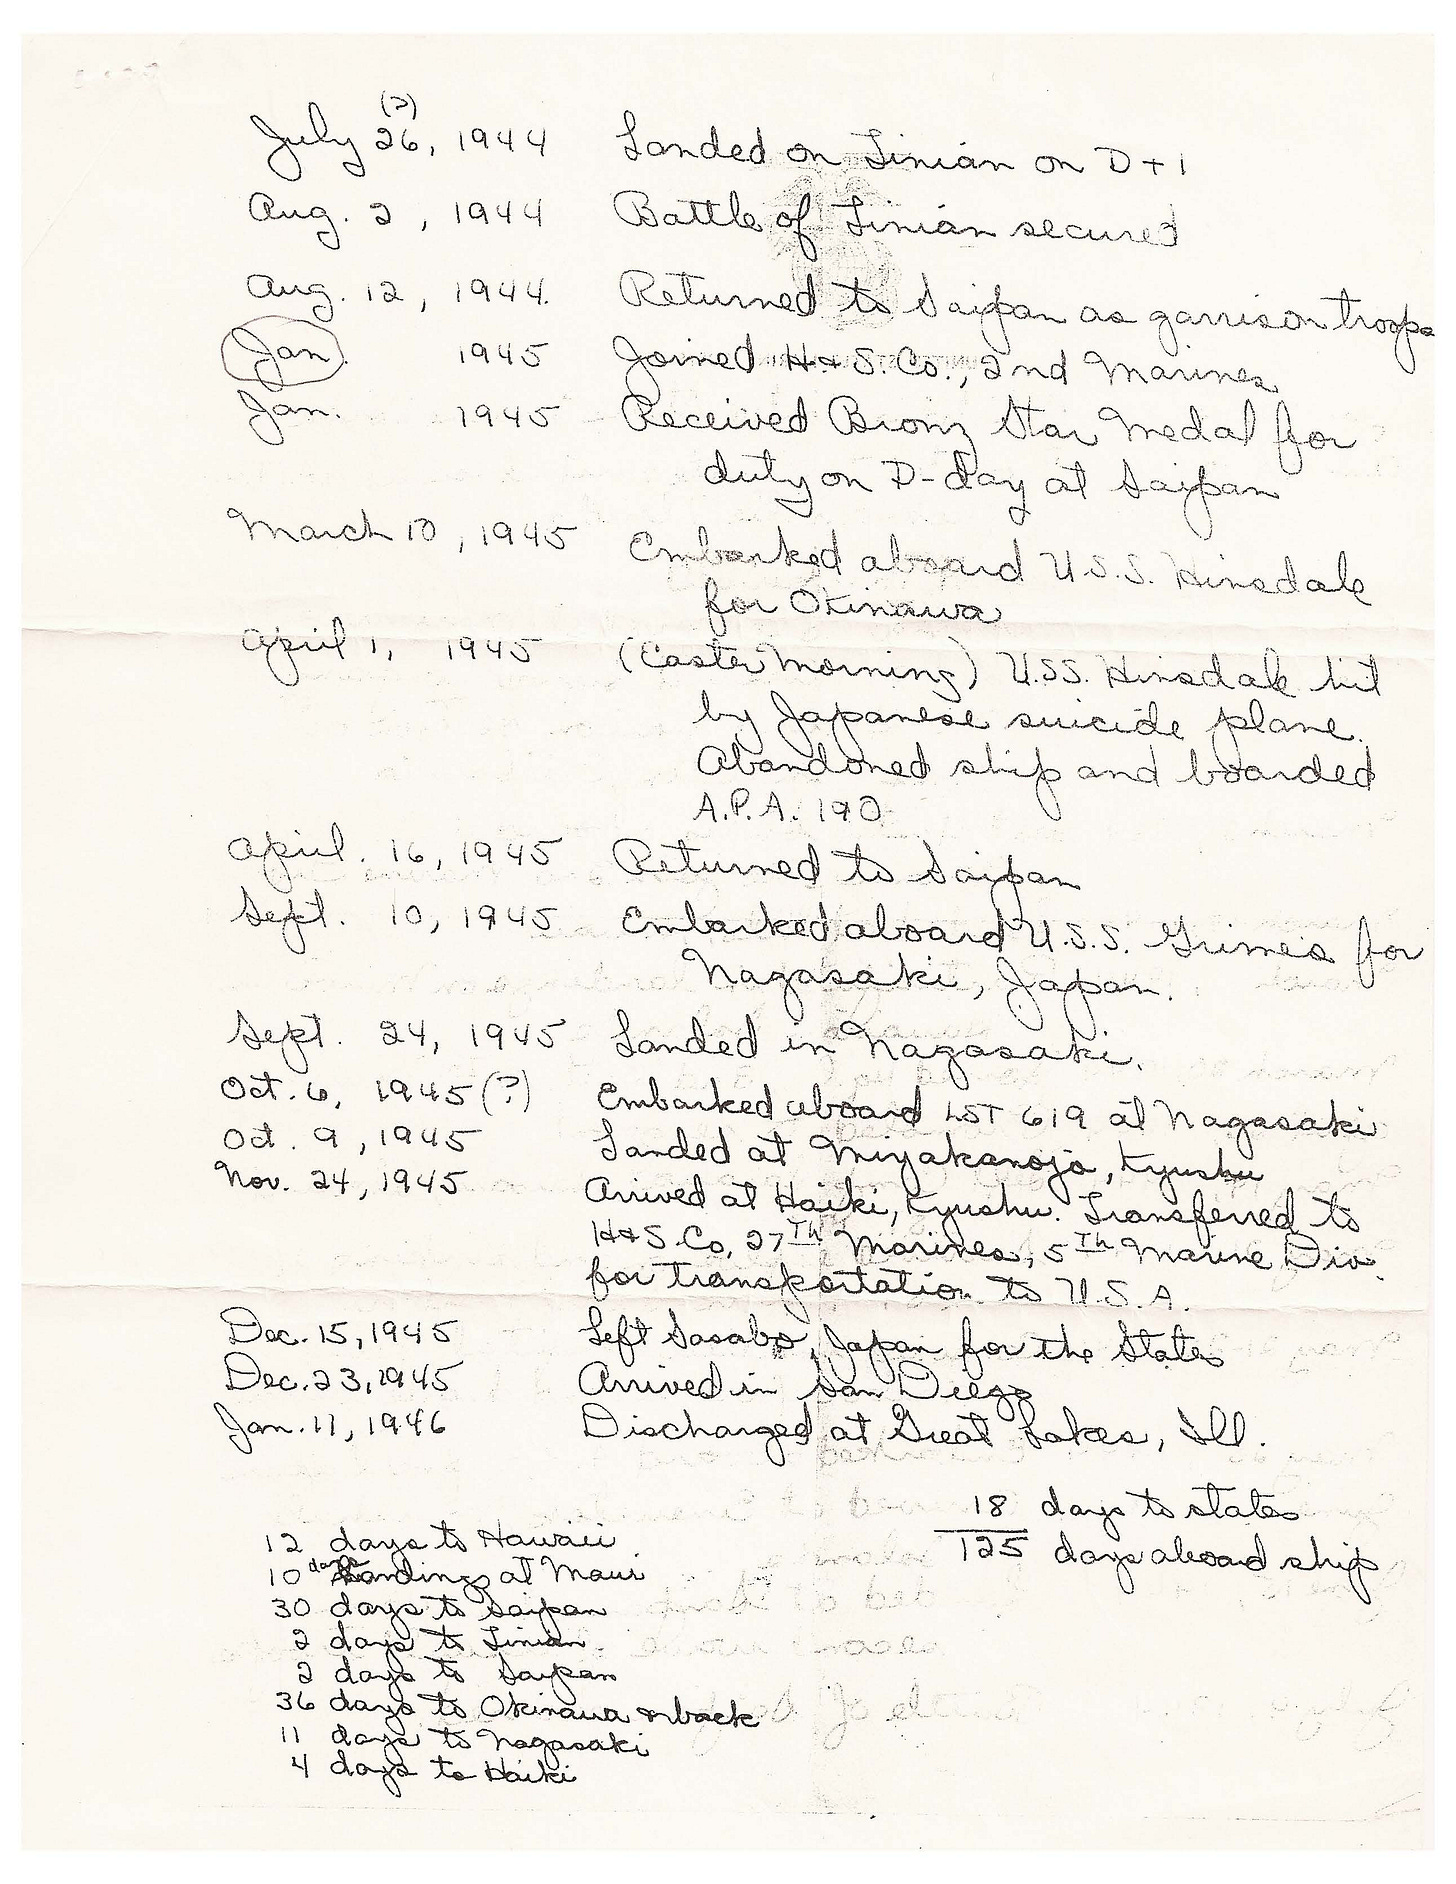 (?)
July 26, 1944 Landed on Tinian on D+1
Aug. 2, 1944 Battle of Tinian secured
Aug. 12, 1944. Returned to Saipan as garrison troops
Jan. 1945 Joined H&S. Co., 2nd Marines
Jan. 1945 Received Bronz Star Medal for
duty on D-day at Saipan
March 10, 1945 Embarked aboard U.S.S. Hinsdale
for Okinawa
April 1, 1945 (Easter Morning) U.S.S. Hinsdale hit
by Japanese suicide plane.
Abandoned ship and boarded
A.P.A. 190
April. 16, 1945 Returned to Saipan
Sept. 10, 1945 Embarked aboard U.S.S. Grimes for
Nagasaki, Japan.
Sept. 24, 1945 Landed in Nagasaki.
Oct. 6, 1945 (?) Embarked aboard LST 619 at Nagasaki
Oct. 9, 1945 Landed at Miyakanojo, Kyushu
Nov. 24, 1945 Arrived at Haiki, Kyushu. Transferred to
H&S. Co, 27Th Marines, 5Th Marine Div.
for transportation to U.S.A.
Dec. 15, 1945 Left Sasabo, Japan for the States
Dec. 23, 1945 Arrived in San Diego
Jan. 11, 1946 Discharged at Great Lakes, Ill.
18 days to states
125 days aboard ship
12 days to Hawaii
10 days Landing at Maui
30 days to Saipan
2 days to Tinian
2 days to Saipan
36 days to Okinawa & back
11 days to Nagasaki
4 days to Haiki